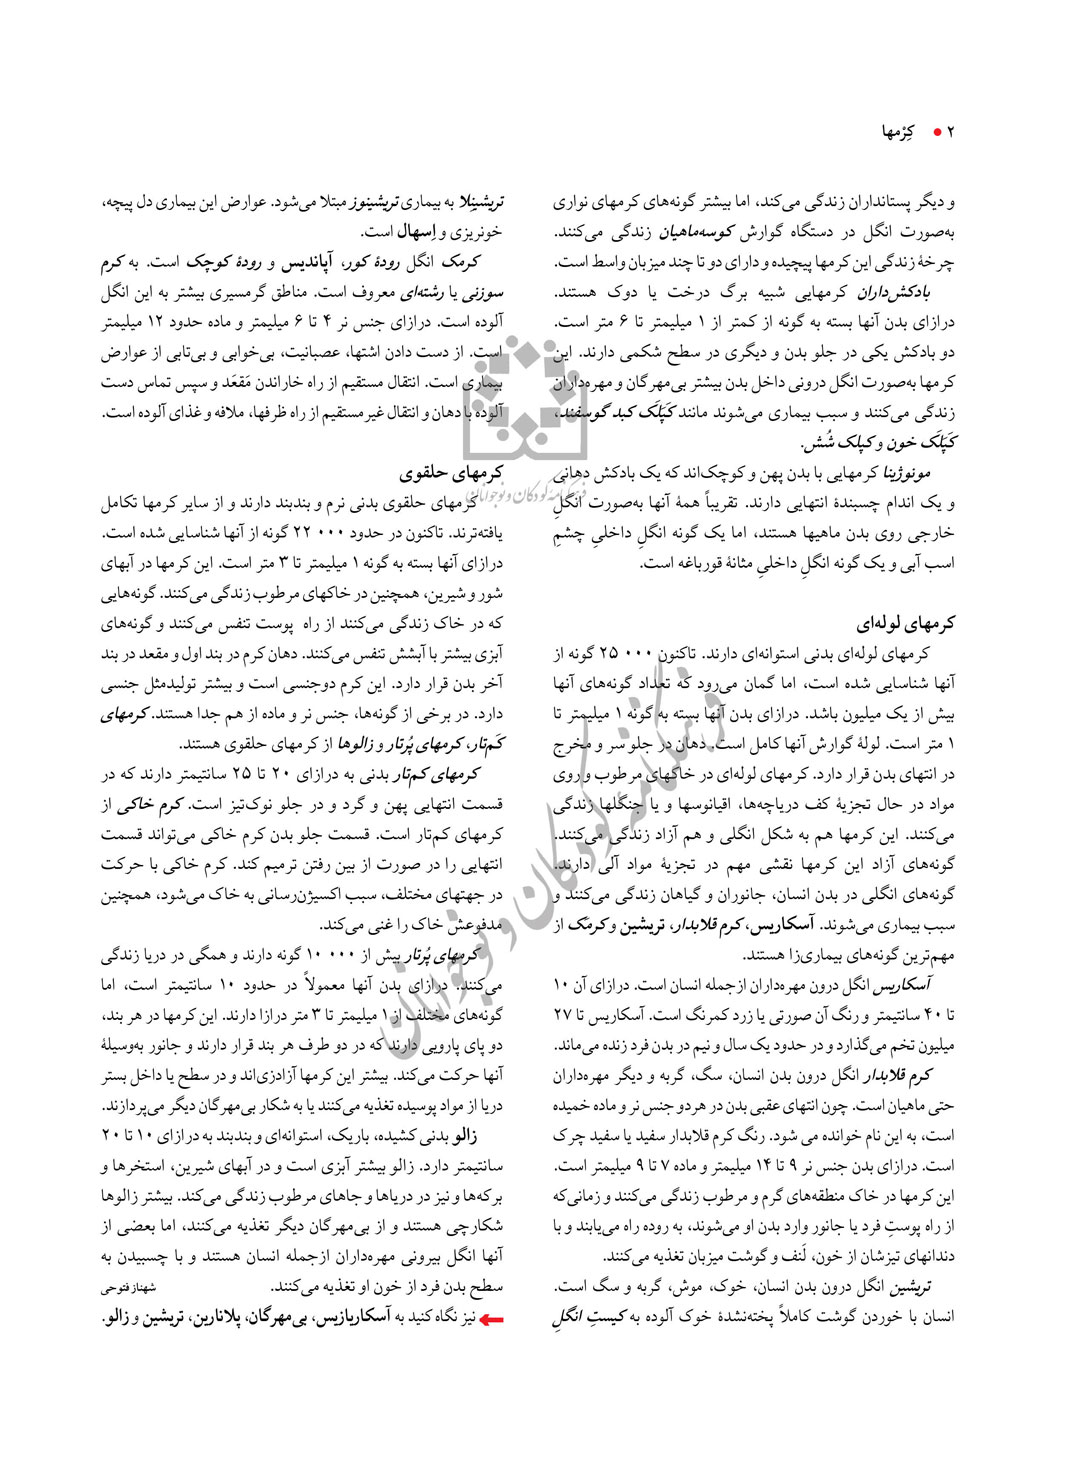 ۲ • کِرْمها
و دیگر پستانداران زندگی می‌کند، اما بیشتر گونه‌های کرمهای نواری
به‌صورت انگل در دستگاه گوارش کوسه‌ماهیان زندگی می‌کنند.
چرخهٔ زندگی این کرمها پیچیده و دارای دو تا چند میزبان واسط است.
بادکش‌داران کرمهایی شبیه برگ درخت یا دوک هستند.
درازای بدن آنها بسته به گونه از کمتر از ۱ میلیمتر تا ۶ متر است.
دو بادکش یکی در جلو بدن و دیگری در سطح شکمی دارند. این
کرمها به‌صورت انگل درونی داخل بدن بیشتر بی‌مهرگان و مهره‌داران
زندگی می‌کنند و سبب بیماری می‌شوند مانند کَپَلَک کبد گوسفند،
کَپَلَک خون و کپلک شُش.
مونوژینا کرمهایی با بدن پهن و کوچک‌اند که یک بادکش دهانی
و یک اندام چسبندهٔ انتهایی دارند. تقریباً همهٔ آنها به‌صورت انگلِ
خارجی روی بدن ماهیها هستند، اما یک گونه انگلِ داخلیِ چشمِ
اسب آبی و یک گونه انگلِ داخلیِ مثانهٔ قورباغه است.
کرمهای لوله‌ای
کرمهای لوله‌ای بدنی استوانه‌ای دارند. تاکنون ۲۵ ۰۰۰ گونه از
آنها شناسایی شده است، اما گمان می‌رود که تعداد گونه‌های آنها
بیش از یک میلیون باشد. درازای بدن آنها بسته به گونه ۱ میلیمتر تا
۱ متر است. لولهٔ گوارش آنها کامل است. دهان در جلو سر و مخرج
در انتهای بدن قرار دارد. کرمهای لوله‌ای در خاکهای مرطوب و روی
مواد در حال تجزیهٔ کف دریاچه‌ها، اقیانوسها و یا جنگلها زندگی
می‌کنند. این کرمها هم به شکل انگلی و هم آزاد زندگی می‌کنند.
گونه‌های آزاد این کرمها نقشی مهم در تجزیهٔ مواد آلی دارند.
گونه‌های انگلی در بدن انسان، جانوران و گیاهان زندگی می‌کنند و
سبب بیماری می‌شوند. آسکاریس، کرم قلابدار، تریشین و کرمَک از
مهم‌ترین گونه‌های بیماری‌زا هستند.
آسکاریس انگل درون مهره‌داران ازجمله انسان است. درازای آن ۱۰
تا ۴۰ سانتیمتر و رنگ آن صورتی یا زرد کمرنگ است. آسکاریس تا ۲۷
میلیون تخم می‌گذارد و در حدود یک سال و نیم در بدن فرد زنده می‌ماند.
کرم قلابدار انگل درون بدن انسان، سگ، گربه و دیگر مهره‌داران
حتی ماهیان است. چون انتهای عقبی بدن در هردو جنس نر و ماده خمیده
است، به این نام خوانده می شود. رنگ کرم قلابدار سفید یا سفید چرک
است. درازای بدن جنس نر ۹ تا ۱۴ میلیمتر و ماده ۷ تا ۹ میلیمتر است.
این کرمها در خاک منطقه‌های گرم و مرطوب زندگی می‌کنند و زمانی‌که
از راه پوستِ فرد یا جانور وارد بدن او می‌شوند، به روده راه می‌یابند و با
دندانهای تیزشان از خون، لَنف و گوشت میزبان تغذیه می‌کنند.
تریشین انگل درون بدن انسان، خوک، موش، گربه و سگ است.
انسان با خوردن گوشت کاملاً پخته‌نشدهٔ خوک آلوده به کیستِ انگلِ
تریشینِلا به بیماری تریشینوز مبتلا می‌شود. عوارض این بیماری دل پیچه،
خونریزی و اِسهال است.
کرمک انگل رودهٔ کور، آپاندیس و رودهٔ کوچک است. به کرم
سوزنی یا رشته‌ای معروف است. مناطق گرمسیری بیشتر به این انگل
آلوده است. درازای جنس نر ۴ تا ۶ میلیمتر و ماده حدود ۱۲ میلیمتر
است. از دست دادن اشتها، عصبانیت، بی‌خوابی و بی‌تابی از عوارض
بیماری است. انتقال مستقیم از راه خاراندن مَقعَد و سپس تماس دست
آلوده با دهان و انتقال غیرمستقیم از راه ظرفها، ملافه و غذای آلوده است.
کرمهای حلقوی
کرمهای حلقوی بدنی نرم و بندبند دارند و از سایر کرمها تکامل
یافته‌ترند. تاکنون در حدود ۲۲ ۰۰۰ گونه از آنها شناسایی شده است.
درازای آنها بسته به گونه ۱ میلیمتر تا ۳ متر است. این کرمها در آبهای
شور و شیرین، همچنین در خاکهای مرطوب زندگی می‌کنند. گونه‌هایی
که در خاک زندگی می‌کنند از راه پوست تنفس می‌کنند و گونه‌های
آبزی بیشتر با آبشش تنفس می‌کنند. دهان کرم در بند اول و مقعد در بند
آخر بدن قرار دارد. این کرم دوجنسی است و بیشتر تولیدمثل جنسی
دارد. در برخی از گونه‌ها، جنس نر و ماده از هم جدا هستند. کرمهای
کَم‌تار، کرمهای پُرتار و زالوها از کرمهای حلقوی هستند.
کرمهای کم‌تار بدنی به درازای ۲۰ تا ۲۵ سانتیمتر دارند که در
قسمت انتهایی پهن و گرد و در جلو نوک‌تیز است. کرم خاکی از
کرمهای کم‌تار است. قسمت جلو بدن کرم خاکی می‌تواند قسمت
انتهایی را در صورت از بین رفتن ترمیم کند. کرم خاکی با حرکت
در جهتهای مختلف، سبب اکسیژن‌رسانی به خاک می‌شود، همچنین
مدفوعش خاک را غنی می‌کند.
کرمهای پُرتار بیش از ۱۰ ۰۰۰ گونه دارند و همگی در دریا زندگی
می‌کنند. درازای بدن آنها معمولاً در حدود ۱۰ سانتیمتر است، اما
گونه‌های مختلف از ۱ میلیمتر تا ۳ متر درازا دارند. این کرمها در هر بند،
دو پای پارویی دارند که در دو طرف هر بند قرار دارند و جانور به‌وسیلهٔ
آنها حرکت می‌کند. بیشتر این کرمها آزادزی‌اند و در سطح یا داخل بستر
دریا از مواد پوسیده تغذیه می‌کنند یا به شکار بی‌مهرگان دیگر می‌پردازند.
زالو بدنی کشیده، باریک، استوانه‌ای و بندبند به درازای ۱۰ تا ۲۰
سانتیمتر دارد. زالو بیشتر آبزی است و در آبهای شیرین، استخرها و
برکه‌ها و نیز در دریاها و جاهای مرطوب زندگی می‌کند. بیشتر زالوها
شکارچی هستند و از بی‌مهرگان دیگر تغذیه می‌کنند، اما بعضی از
آنها انگل بیرونی مهره‌داران ازجمله انسان هستند و با چسبیدن به
سطح بدن فرد از خون او تغذیه می‌کنند. شهناز فتوحی
نیز نگاه کنید به آسکاریازیس، بی‌مهرگان، پلانارین، تریشین و زالو.
فرهنگنامهٔ کودکان و نوجوانان
فرهنگنامهٔ کودکان و نوجوانان